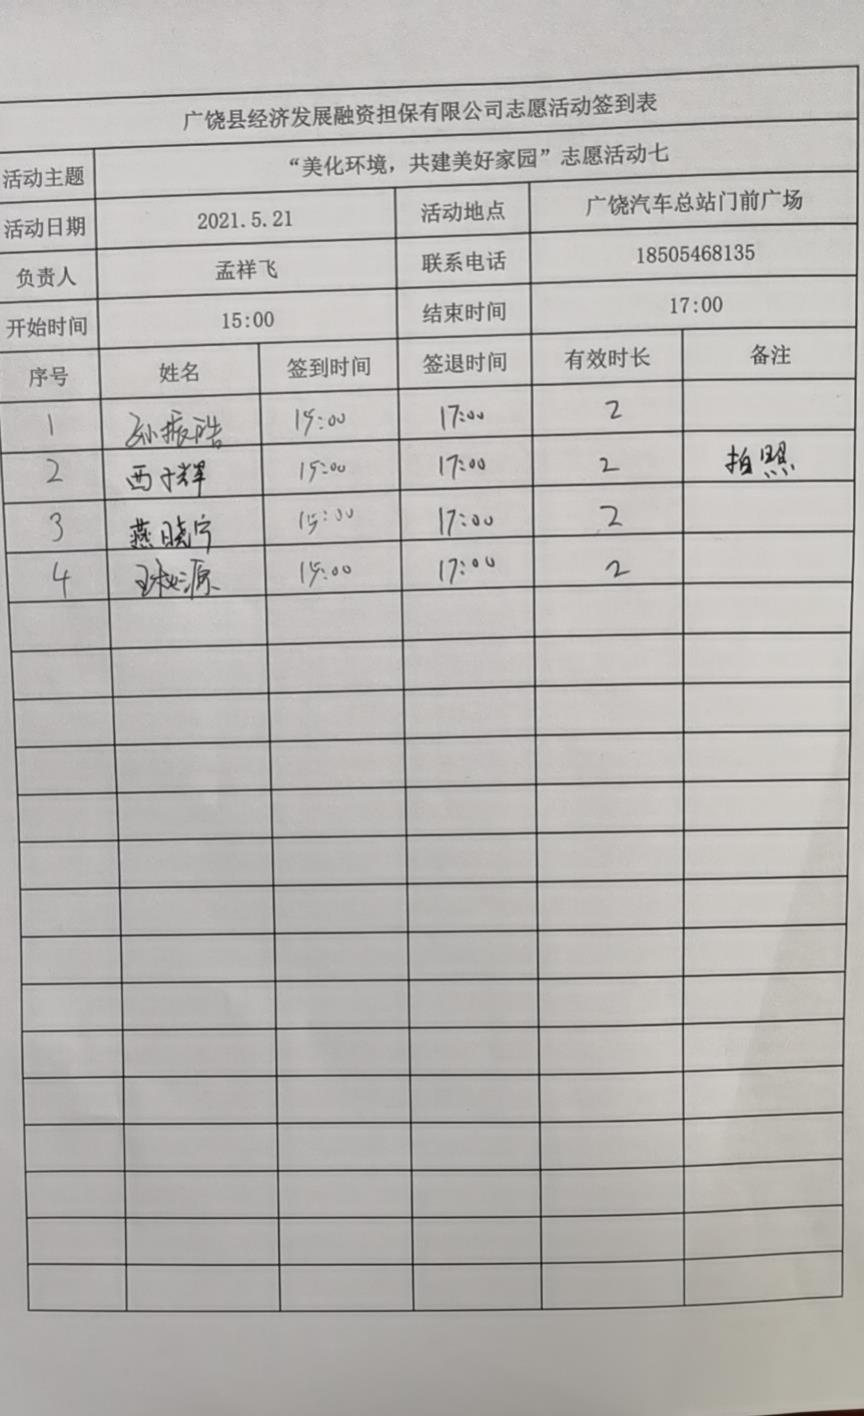 广饶县经济发展融资担保有限公司志愿活动签到表
活动主题 “美化环境，共建美好家园”志愿活动七
活动日期 2021.5.21 活动地点 广饶汽车总站门前广场
负责人 孟祥飞 联系电话 18505468135
开始时间 15:00 结束时间 17:00
序号 姓名 签到时间 签退时间 有效时长 备注
1 孙振浩 15:00 17:00 2
2 西才辉 15:00 17:00 2 拍照
3 燕晓宁 15:00 17:00 2
4 15:00 17:00 2